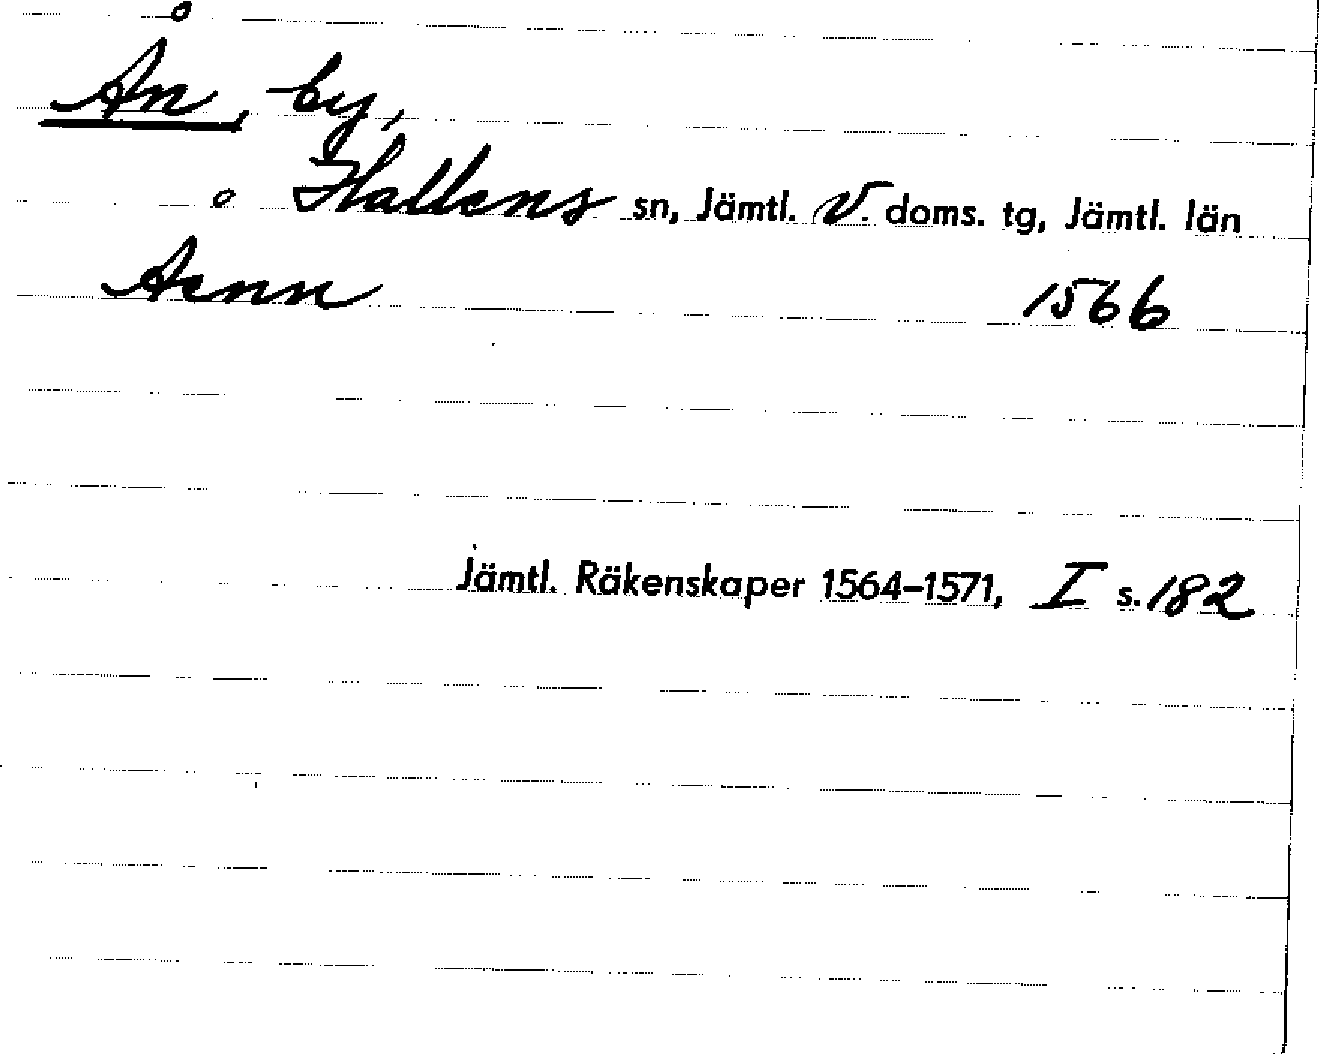 Ån, by,
Hallens sn, Jämtl. V. doms. tg, Jämtl. län
Åenn 1566
Jämtl. Räkenskaper 1564–1571, I s. 182